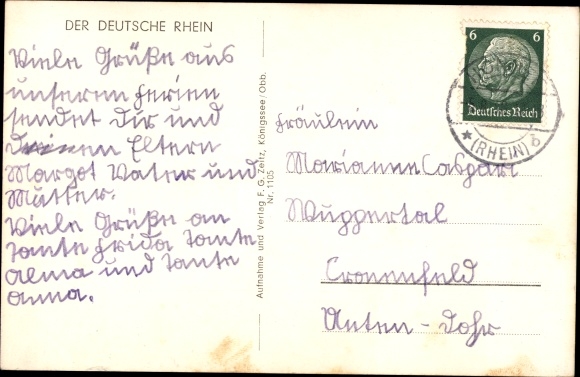 DER DEUTSCHE RHEIN
Viele Grüße aus
unseren Ferien
sendet Dir und
Deinen Eltern
Margot Vater und
Mutter.
Viele Grüße an
Tante Frida Tante
Alma und Tante
Anna.
Aufnahme und Verlag F. G. Zeitz, Königssee/Obb.
Nr. 1105
6 6
Deutsches Reich
* (RHEIN) δ
Fräulein
Marianne Caspari
Wuppertal
Cronenfeld
Unten-Dohr